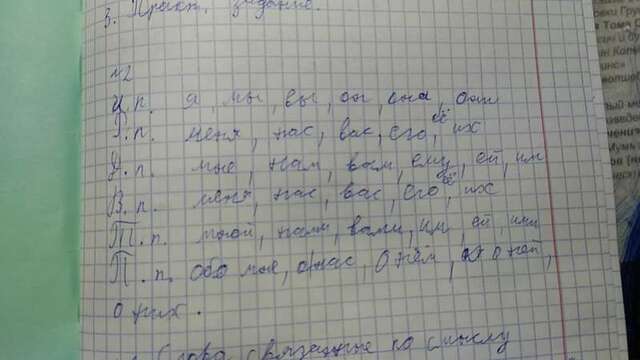 3. Практ. задание.
№2
И.п. я, мы, вы, он, она, они
Р.п. меня, нас, вас, его, её, их
Д.п. мне, нам, вам, ему, ей, им
В.п. меня, нас, вас, его, её, их
Т.п. мной, нами, вами, им, ей, ими
П.п. обо мне, о нас, о нём, о ней,
о них.
Слова связанные по смыслу